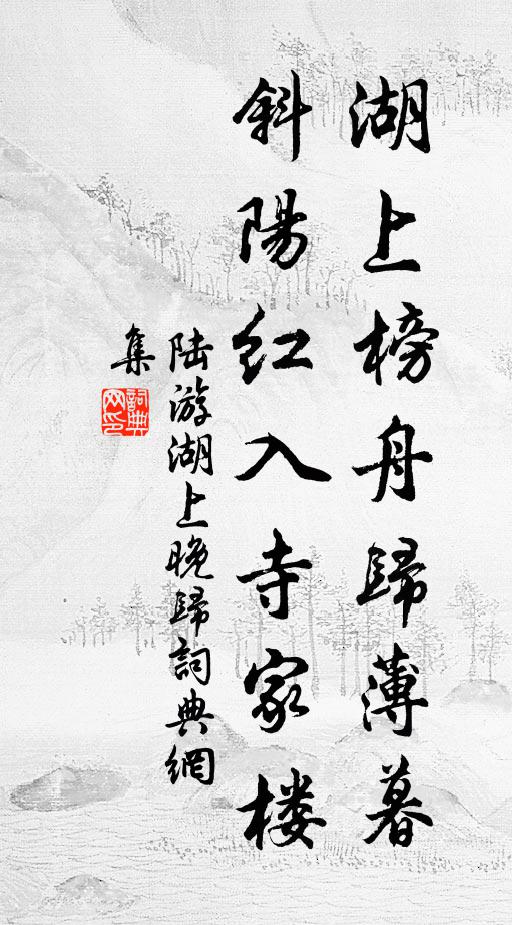 湖上榜舟歸薄暮
斜陽紅入寺家楼
陆游湖上晚歸詞典網
集
詞典网印